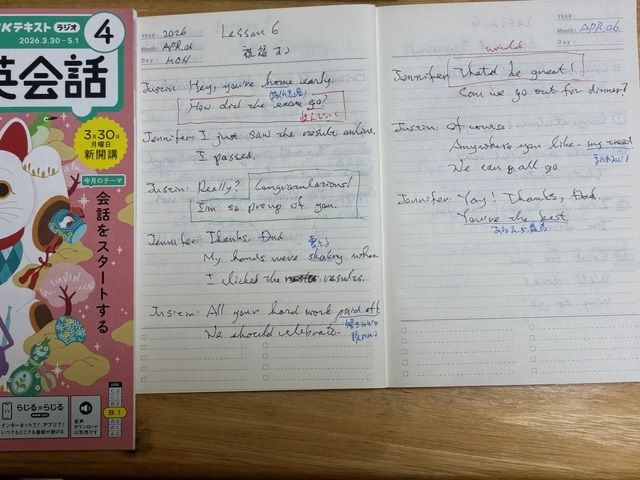 Kテキスト ラジオ
2026.3.30-5.1
4
英会話
3月30日
月曜日
新開講
今月のテーマ
会話をスタートする
らじる★らじる
インターネットで! アプリで!
いつでもどこでも番組が聴ける
音声
ダウンロード
は別売です
LEVEL
C2
C1
B2
B1
A2
A1
A0
YEAR: 2026
Month: APR 06
Day: MON
Lesson 6
Justin: Hey, you're home early.
How did the exam go?
Jennifer: I just saw the results online.
I passed.
Justin: Really? Congratulations!
I'm so proug of you.
Jennifer: Thanks, Dad
My hands were shaking when
I clicked the results.
Justin: All your hard work paid off
We should celebrate.
YEAR:
Month: APR 06
Day:
would
Jennifer: That'd be great!
Can we go out for dinner?
Justin: Of course.
Anywhere you like - my treat
We can all go
Jennifer: Yay! Thanks, Dad.
You're the best